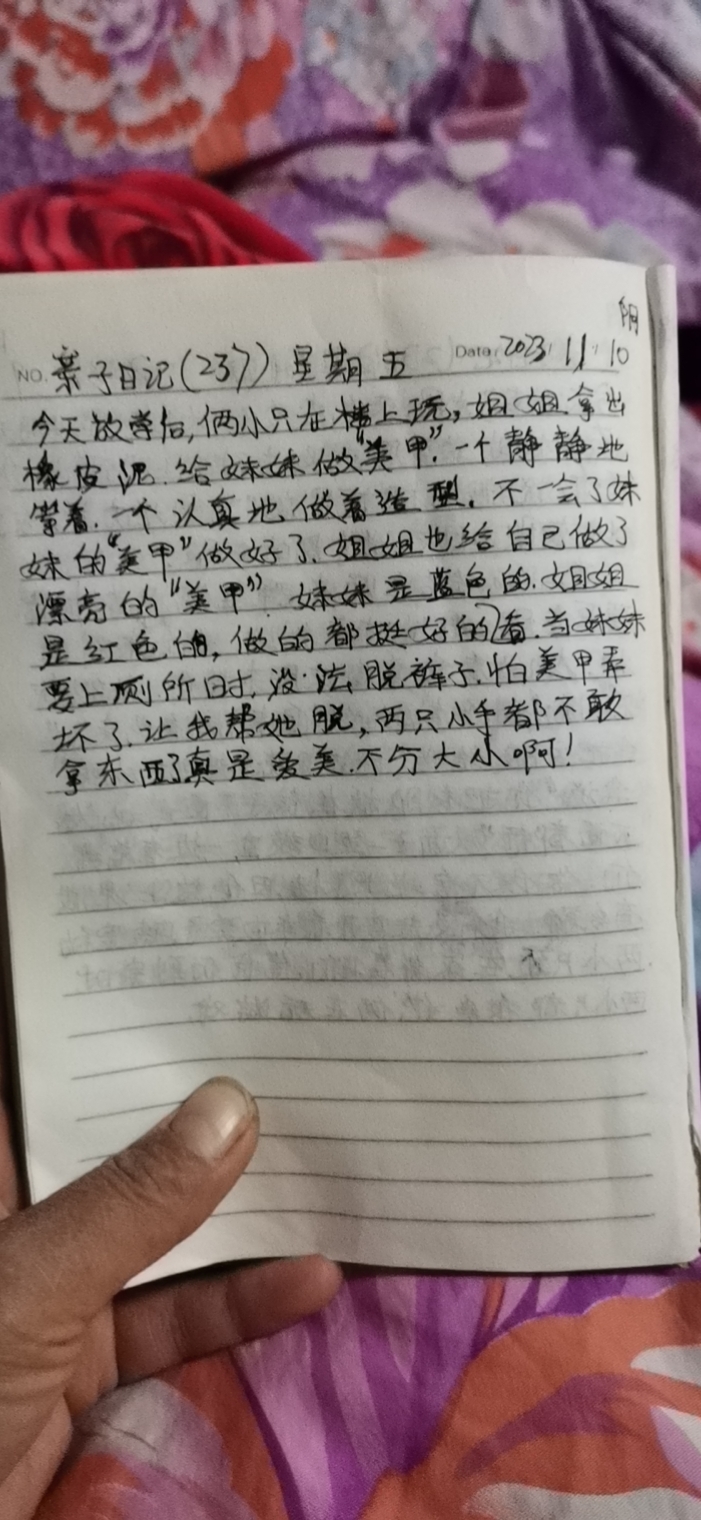 阴
NO. 亲子日记(237) 星期五 Date. 2023. 11. 10
今天放学后,俩小只在楼上玩,姐姐拿出
橡皮泥.给妹妹做"美甲".一个静静地
等着.一个认真地做着造型.不一会了妹
妹的"美甲"做好了.姐姐也给自己做了
漂亮的"美甲".妹妹是蓝色的.姐姐
是红色的,做的都挺好的看.当妹妹
要上厕所时.没法脱裤子.怕美甲弄
坏了.让我帮她脱,两只小手都不敢
拿东西了真是爱美.不分大小啊!